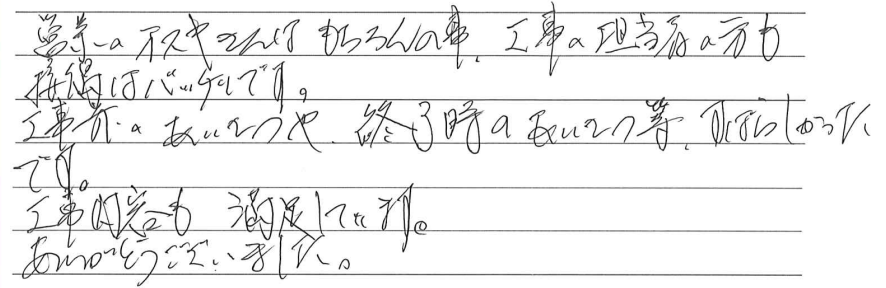 営業のヤスキさんはもちろんの事、工事の担当者の方も
接客はバッチリです。
工事前のあいさつや、終了時のあいさつ等、すばらしかった
です。
工事内容も 満足しています。
ありがとうございました。